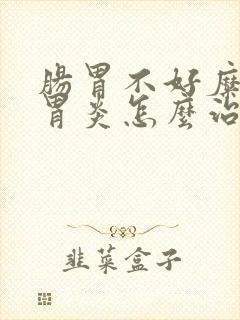 腸胃不好糜
胃炎怎麼治
韭菜盒子